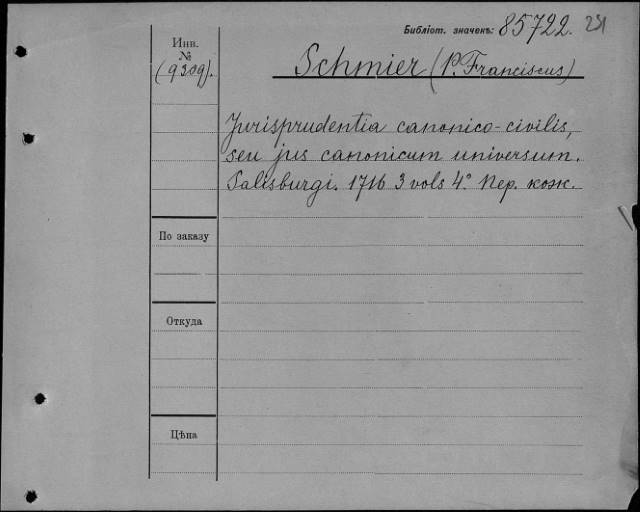 Библіот. значекъ: 85722.
Инв.
№
(9309).
Schmier (P. Franciscus)
Jurisprudentia canonico-civilis,
seu jus canonicum universum.
Salisburgi. 1716 3 vols 4° Пер. кож.
По заказу
Откуда
Цѣна